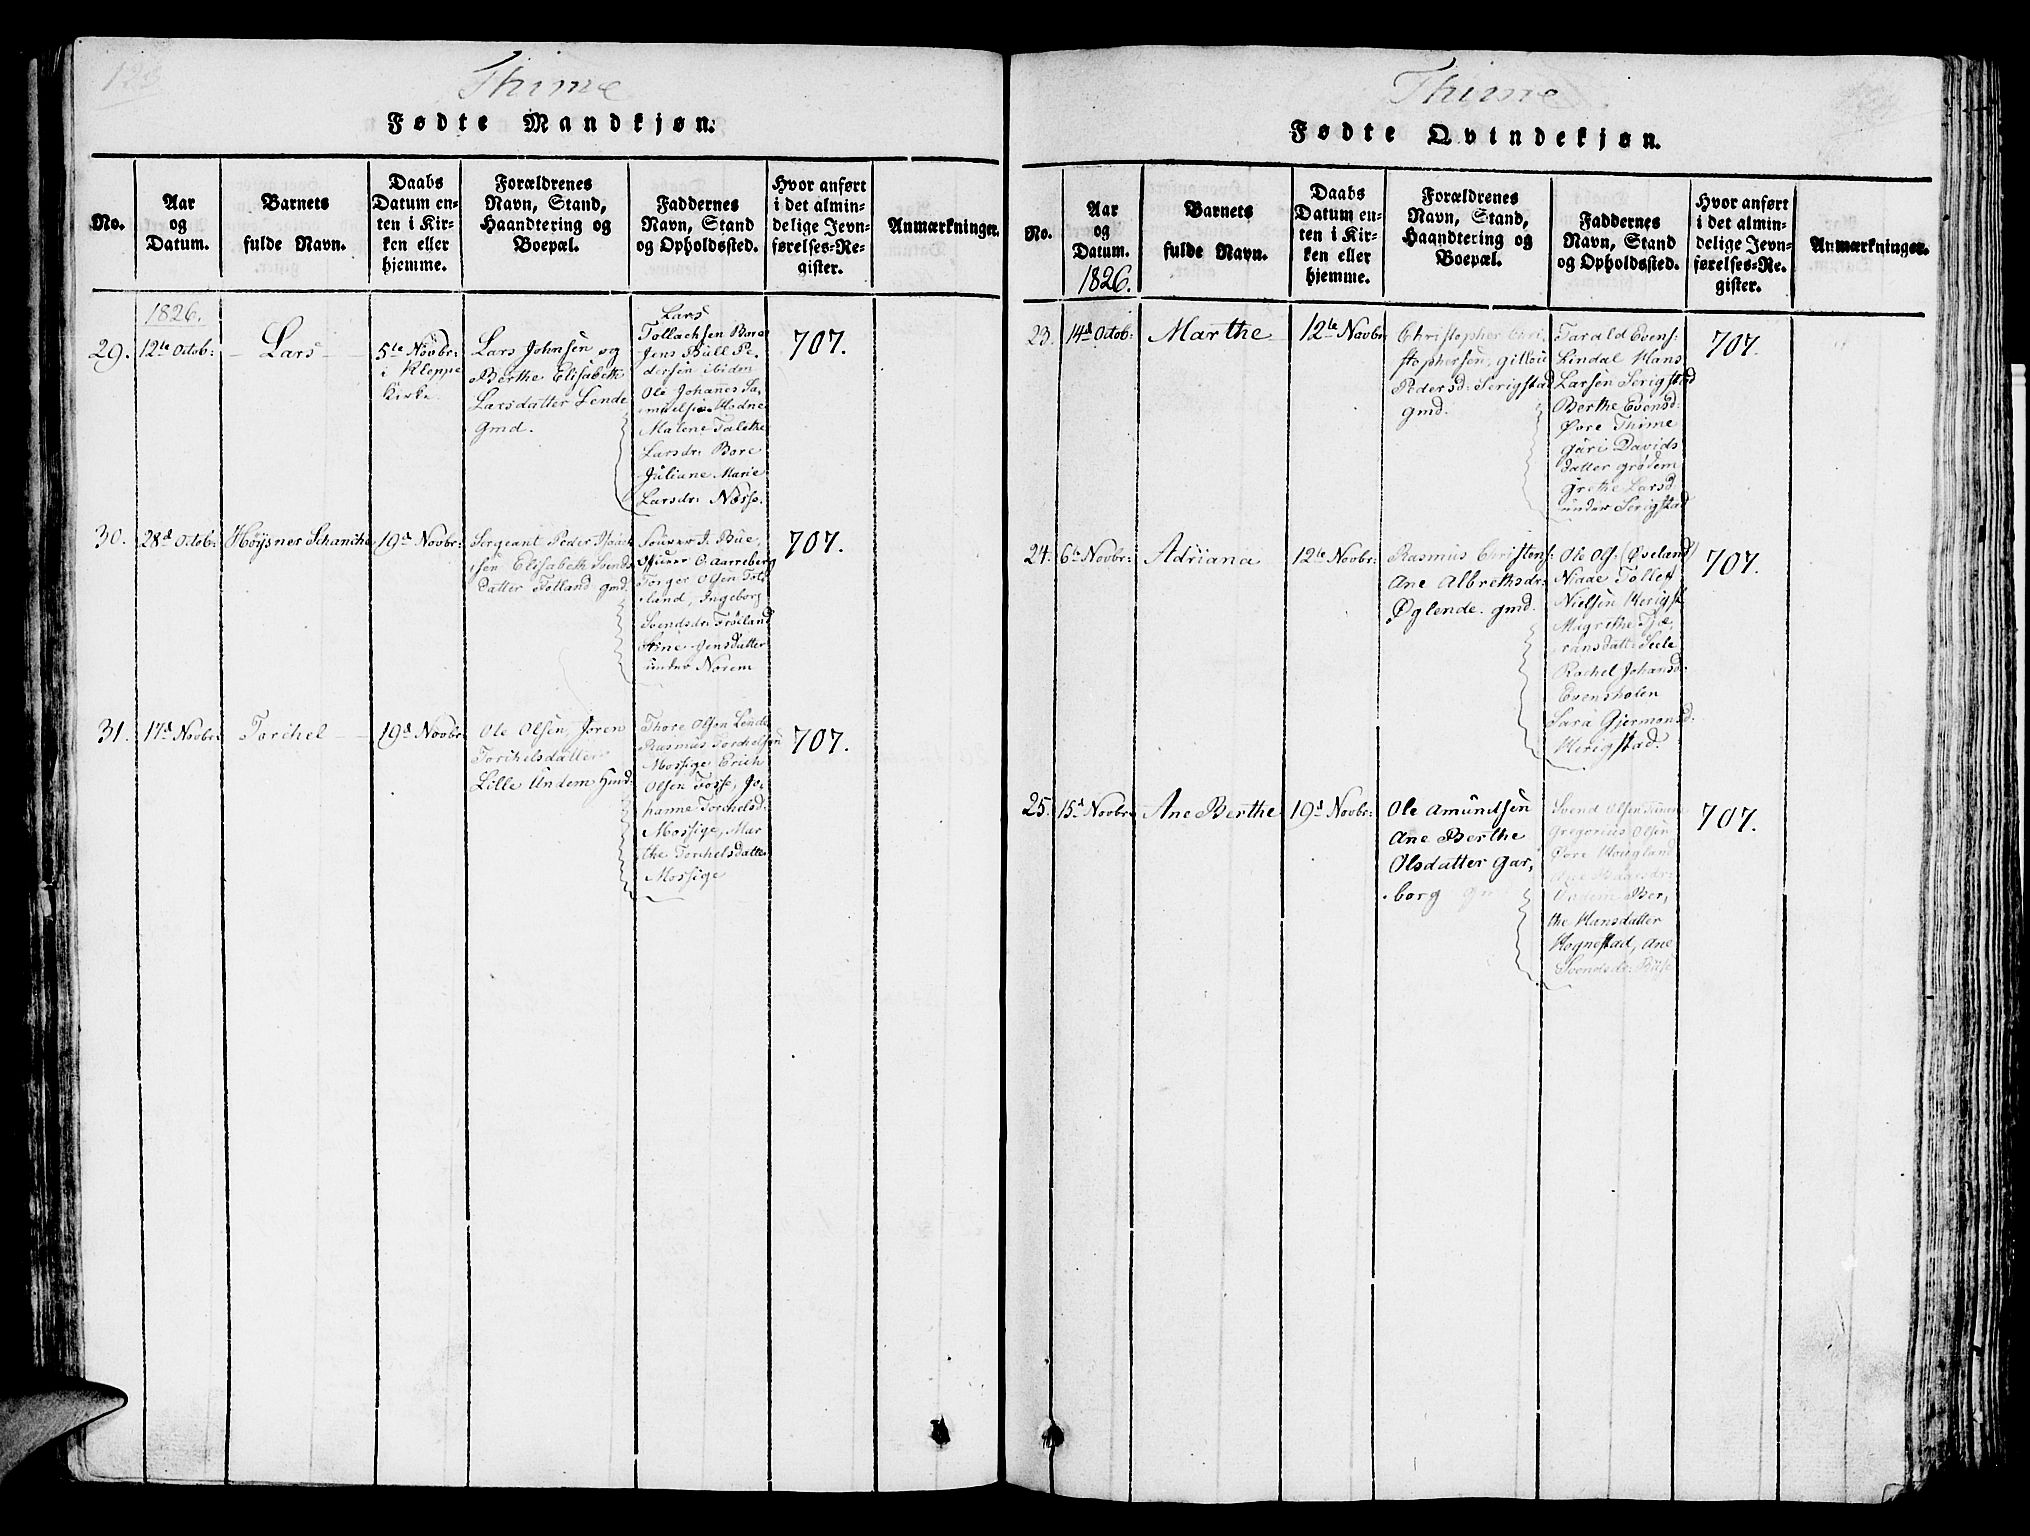 123
Thime
Fødte Mandkjøn.
No.
Aar
og
Datum.
Barnets
fulde Navn.
Daabs
Datum en-
ten i Kir-
ken eller
hjemme.
Forældrenes
Navn, Stand,
Haandtering og
Boepæl.
Faddernes
Navn, Stand
og Opholdssted.
Hvor anført
i det almin-
delige Jevn-
førelses-Re-
gister.
Anmærkninger.
1826.
29.
12te Octob:
Lars
5te Novbr:
i Kleppe
Kirke.
Lars Johnsen og
Berthe Elisabeth
Larsdatter Lende
gmd.
Lars
Tollachsen Bore
Jens Bull Pe-
dersen ibidm
Ole Johanes Sa-
muelsen Hodne
Malene Talethe
Larsdr: Bore
Juliane Marie
Larsdr: Næsse.
707.
30.
28d Octob:
Høysner Schanche
19d Novbr:
Sergeant Peder
sen Elisabeth Svends
datter Totland gmd.
J. Bue,
O. Aarreberg
Torger Olsen Tot-
land, Ingeborg
Svendsdr: Frøiland
Stine Jensdatter
under Norem
707.
31.
17d Novbr:
Torchel
19d Novbr:
Ole Olsen, Joren
Torchelsdatter
Lille Undem Hmd:
Thore Olsen Lende
Rasmus Torchelsen
Mossige Erich
Olsen Fosse, Jo-
hanne Torchelsd:
Mossige, Mar
the Torchelsdatter
Mossige
707.
Thime
Fødte Qvindekjøn.
No.
Aar
og
Datum.
1826.
Barnets
fulde Navn.
Daabs
Datum en-
ten i Kir-
ken eller
hjemme.
Forældrenes
Navn, Stand,
Haandtering og
Boepæl.
Faddernes
Navn, Stand
og Opholdssted.
Hvor anført
i det almin-
delige Jevn-
førelses-Re-
gister.
Anmærkninger.
23.
14d Octob:
Marthe
12te Novbr:
Christopher Chri-
stophersen, Gitlou
Pedersd: Serigstad
gmd.
Tarald Evens:
Lindal Hans
Larsen Serigstad
Berthe Evensd:
Øvre Thime
Guri Davids
datter Grødem
Grethe Larsd
under Serigstad
707.
24.
6te Novbr:
Adriana
12te Novbr:
Rasmus Christens:
Ane Albrethsdr:
Øglende. gmd.
Ole Ols: (Øseland)
Niaae Tollef
Nielsen Herigst
Magrethe Tje,
ransdatt: Seele
Rachel Johansd:
Evensholen
Sara Gjermonsd:
Herigstad.
707.
25.
15d Novbr:
Ane Berthe
19d Novbr:
Ole Amundsen
Ane Berthe
Olsdatter Gar,
borg gmd
Svend Olsen
Gregorius Olsen
Øvre Hougland
Ane
Undem Ber,
the Hansdatter
Hognestad, Ane
Svendsdr: Buse
707.